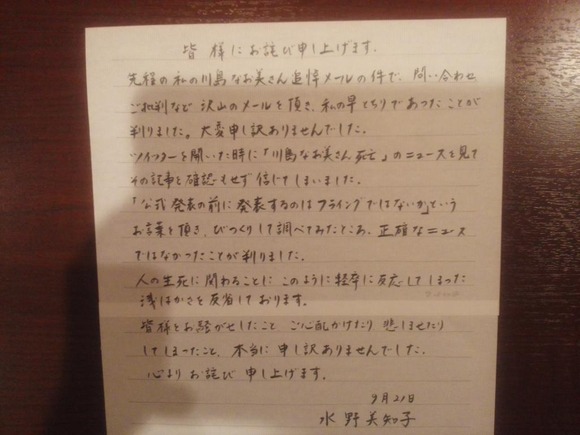 皆様にお詫び申し上げます。
先程の私の川島なお美さん追悼メールの件で、問い合わせ
ご批判など沢山のメールを頂き、私の早とちりであったことが
判りました。大変申し訳ありませんでした。
ツイッターを開いた時に「川島なお美さん死亡」のニュースを見て
その記事を確認もせず信じてしまいました。
「公式発表の前に発表するのはフライングではないか」という
お言葉を頂き、びっくりして調べてみたところ、正確なニュース
ではなかったことが判りました。
人の生死に関わることに このように軽率に反応してしまった
浅はかさを反省しております。
皆様をお騒がせしたこと ご心配かけたり 悲しませたり
してしまったこと、本当に申し訳ありませんでした。
心よりお詫び申し上げます。
9月21日
水野美知子